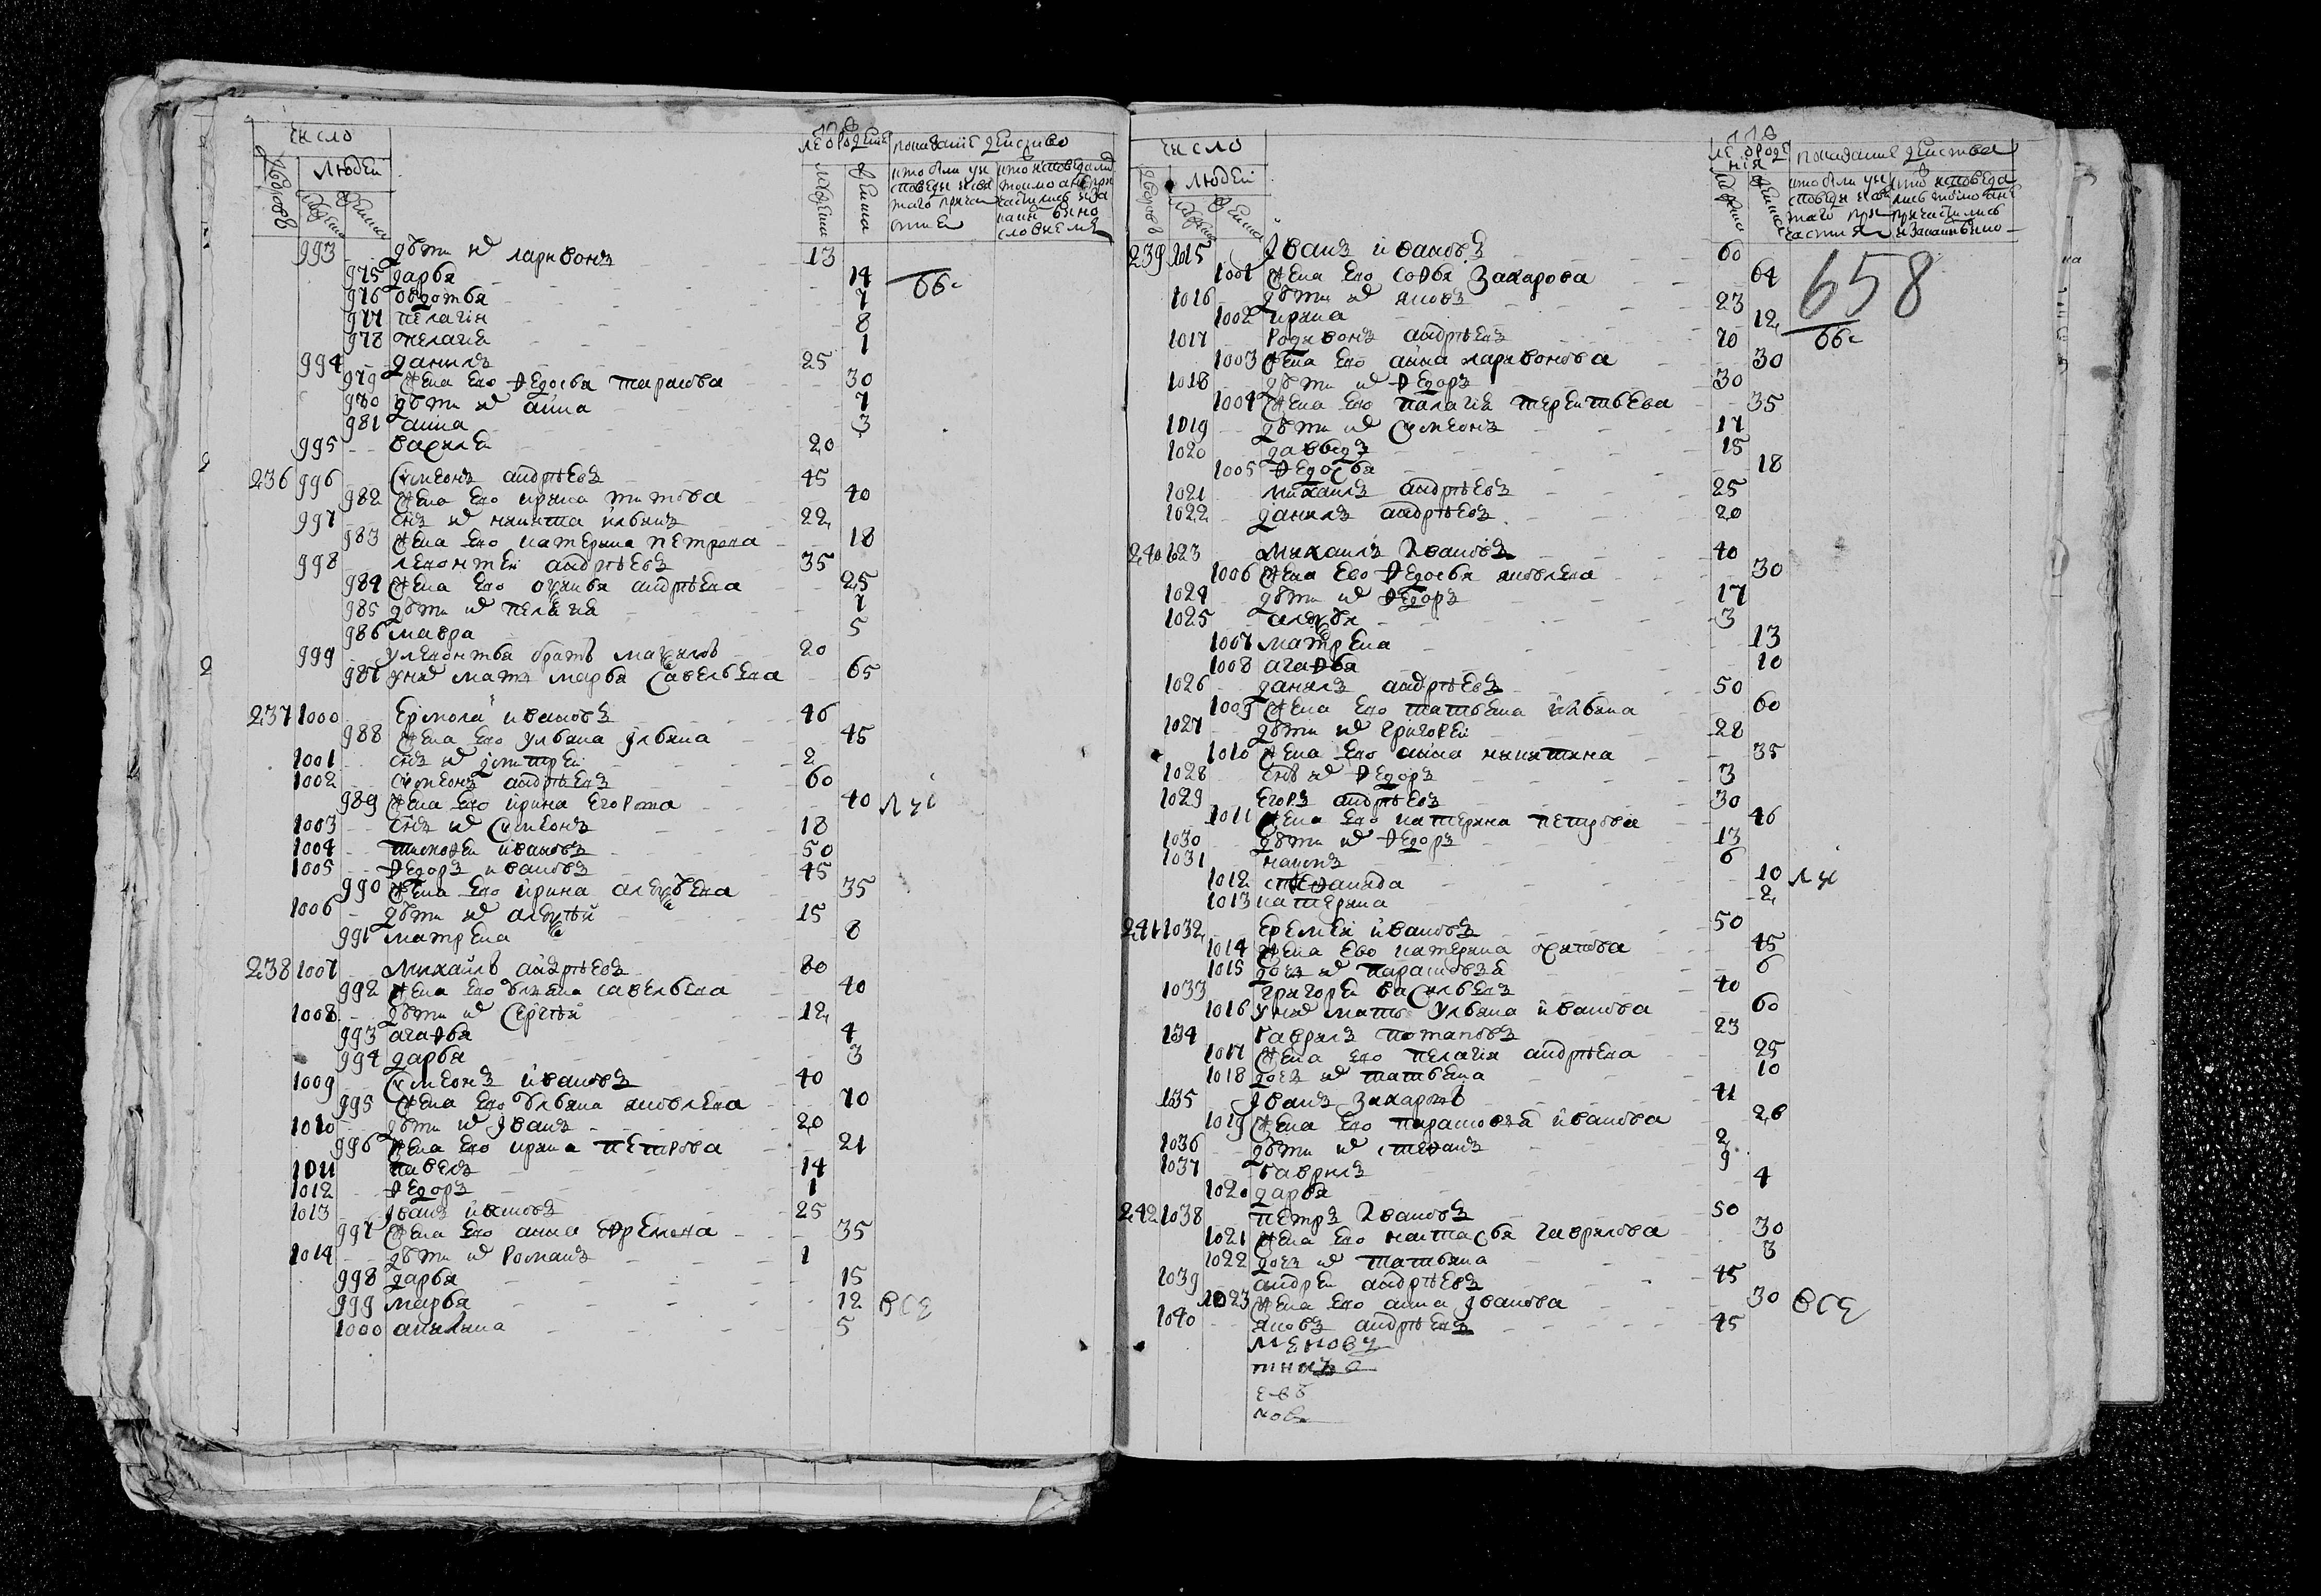 число
людей
993 дѣти их ларивонъ 13
975 дарья 14
976 авдотья 7
977 пелагия 8
978 пелагия 1
994 данилъ 25
979 жена ево федосья тарасова 30
980 дѣти их анна 7
981 анна 3
995 василей 20
236 996 симеонъ андрѣевъ 45
982 жена ево ирина титова 40
997 снъ их никита ильинъ 22
983 жена ево катерина петрова 18
998 леонтей андрѣевъ 35
984 жена ево андрѣева 25
985 дѣти их пелагия 7
986 мавра 5
999 улеонтья братъ 20
987 уних мать марья савельева 65
237 1000 ермола ивановъ 46
988 жена ево ульяна ильина 45
1001 снъ их дмитрей 2
1002 симеонъ андрѣевъ 60
989 жена ево ирина егорова 40
1003 снъ их симеонъ 18
1004 тимофей ивановъ 50
1005 федоръ ивановъ 45
990 жена ево ирина алѣѯѣева 35
1006 дѣти их алѣѯѣй 15
991 матрена 8
238 1007 михайлъ андрѣевъ 80
992 жена ево ульяна савельева 40
1008 дѣти их сергѣй 12
993 агафья 4
994 дарья 3
1009 симеонъ ивановъ 40
995 жена ево ульяна яковлева 70
1010 дѣти их иванъ 20
996 жена ево ирина петрова 21
1011 павелъ 14
1012 федоръ 1
1013 иванъ ивановъ 25
997 жена ево анна ефремова 35
1014 дѣти их романъ 1
998 дарья 15
999 марья 12 все
1000 акилина 5
число
людей
239 1015 иванъ ивановъ 60
1001 жена ево софья захарова 64
658
1016 дѣти их яковъ 23
1002 ирина 12
1017 родивонъ андрѣевъ 70
1003 жена ево анна ларивонова 30
1018 дѣти их федоръ 30
1004 жена ево палагия терентьева 35
1019 дѣти их симеонъ 17
1020 давыдъ 15
1005 федосья 18
1021 михаилъ андрѣевъ 25
1022 данилъ андрѣевъ 20
240 1023 михаилъ ивановъ 40
1006 жена ево федосья яковлева 30
1024 дѣти их федоръ 17
1025 3
1007 матрена 13
1008 агафья 10
1026 данилъ андрѣевъ 50
1009 жена ево татьяна ильина 60
1027 дѣти их григорей 28
1010 жена ево анна никитина 35
1028 снъ их федоръ 3
1029 егоръ андрѣевъ 30
1011 жена ево катерина петрова 46
1030 дѣти их федоръ 13
1031 6
1012 степанида 10
1013 катерина 2
241 1032 еремей ивановъ 50
1014 жена ево катерина 45
1015 дочь их парасковья 6
1033 григорей васильевъ 40
1016 уних мать ульяна иванова 60
134 гаврилъ потаповъ 23
1017 жена ево пелагия андрѣева 25
1018 дочь их татьяна 10
135 иванъ захаровъ 41
1019 жена ево парасковья иванова 26
1036 дѣти их степанъ 2
1037 гаврилъ 9
1020 дарья 4
242 1038 петръ ивановъ 50
1021 жена ево настасья гаврилова 30
1022 дочь их татьяна 3
1039 андрей андрѣевъ 45
1023 жена ево анна иванова 30 все
1040 яковъ андрѣевъ 45